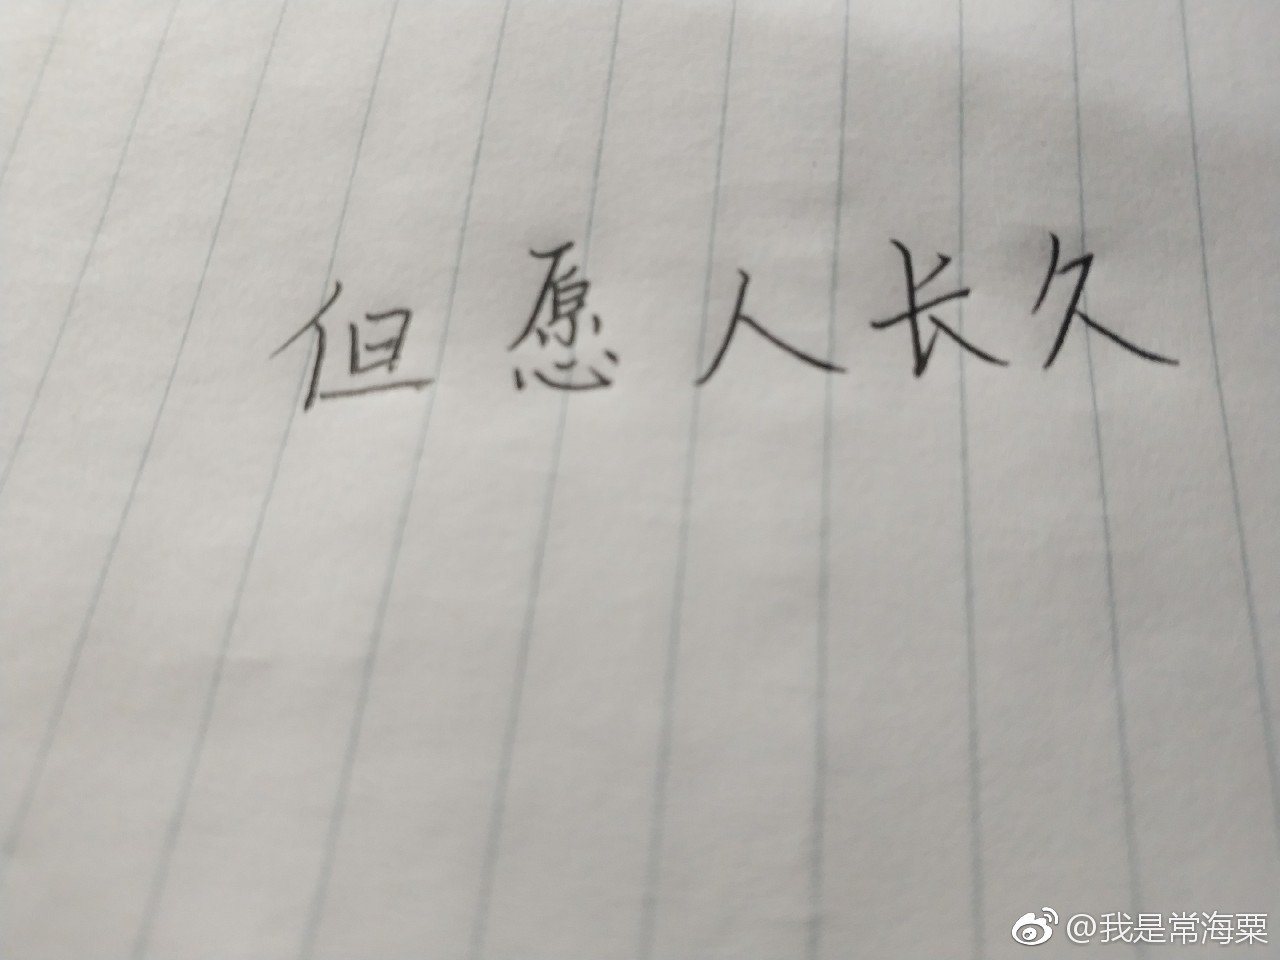 但愿人长久
@我是常海粟